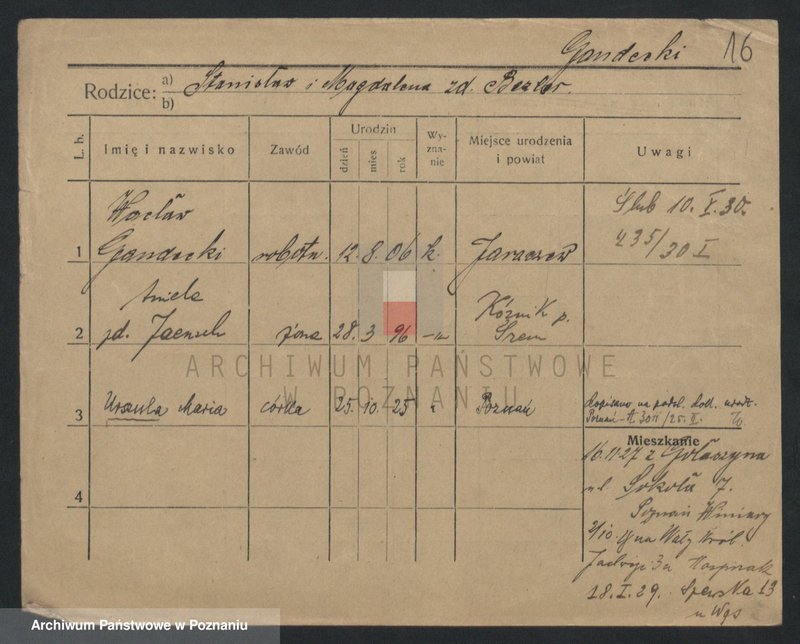 Gandecki 16
Rodzice: a) b) Stanisław i Magdalena zd.
L. b.
Imię i nazwisko
Zawód
Urodzin
dzień
mies
rok
Wy-
zna-
nie
Miejsce urodzenia
i powiat
Uwagi
Wacław
1 Gandecki robotn. 12. 8. 06 k. Jaraczew
Ślub 10. I. 30.
435/30 I
Aniela
2 zd. Jaensch żona 28. 3 96 p.
Śrem
3 Urszula Maria córka 25. 10. 25 Poznań
dopisano na podst. dok. urodz.
Poznań
Mieszkanie
4
16.11.27 z Golaszyna
ul. Sokoła 7.
Poznań Winiary
na Wały Król.
Jadwigi 3a
18. I. 29. Szewska 13
ARCHIWUM PAŃSTWOWE
W POZNANIU
Archiwum Państwowe w Poznaniu